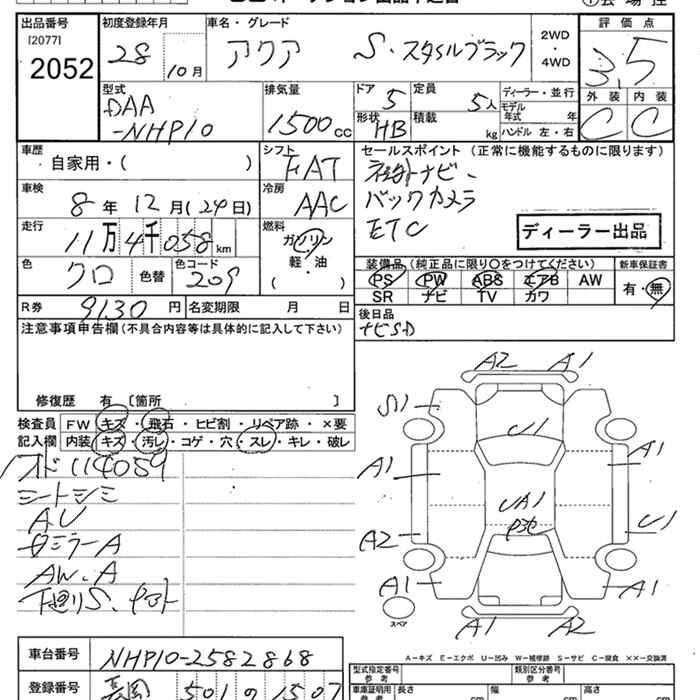 出品番号 初度登録年月 車名・グレード 2WD・4WD 評価点
[2077]
2052 28 10月 アクア S・スタイルブラック 3.5
外装 内装
C C
型式 排気量 ドア 定員 ディーラー・並行
DAA 5 5人 モデル年式 年
-NHP10 1500cc 形状 HB 積載 kg ハンドル 左・右
車歴 シフト セールスポイント(正常に機能するものに限ります)
自家用・( ) FAT
車検 冷房 バックカメラ
8年 12月(24日) AAC ETC
走行 燃料 ディーラー出品
11万4千058km ガソリン・軽油
( )
色 クロ 色替 色コード 209
装備品(純正品に限り○をつけてください) 新車保証書
PS PW ABS エアB AW 有・無
SR ナビ TV カワ
R券 9130円 名変期限 月 日 後日品
注意事項申告欄(不具合内容等は具体的に記入して下さい) ナビSD
修復歴 有 [箇所 ]
検査員 FW キズ・飛石・ヒビ割・リペア跡・×要
記入欄 内装 キズ・汚レ・コゲ・穴・スレ・キレ・破レ
114059
シートシミ
AU
AW.A
A2 A1
S1 U1
A1 A1
UA1
A2 U1
A1 A1
スペア
A1 A2
A-キズ E-エクボ U-凹み W-補修跡 S-サビ C-腐食 ××-交換済
車台番号 NHP10-2582868
登録番号 501 の 1507
型式指定番号 参考 類別区分番号 参考
車庫証明用 参考 長さ cm 幅 cm 高さ cm